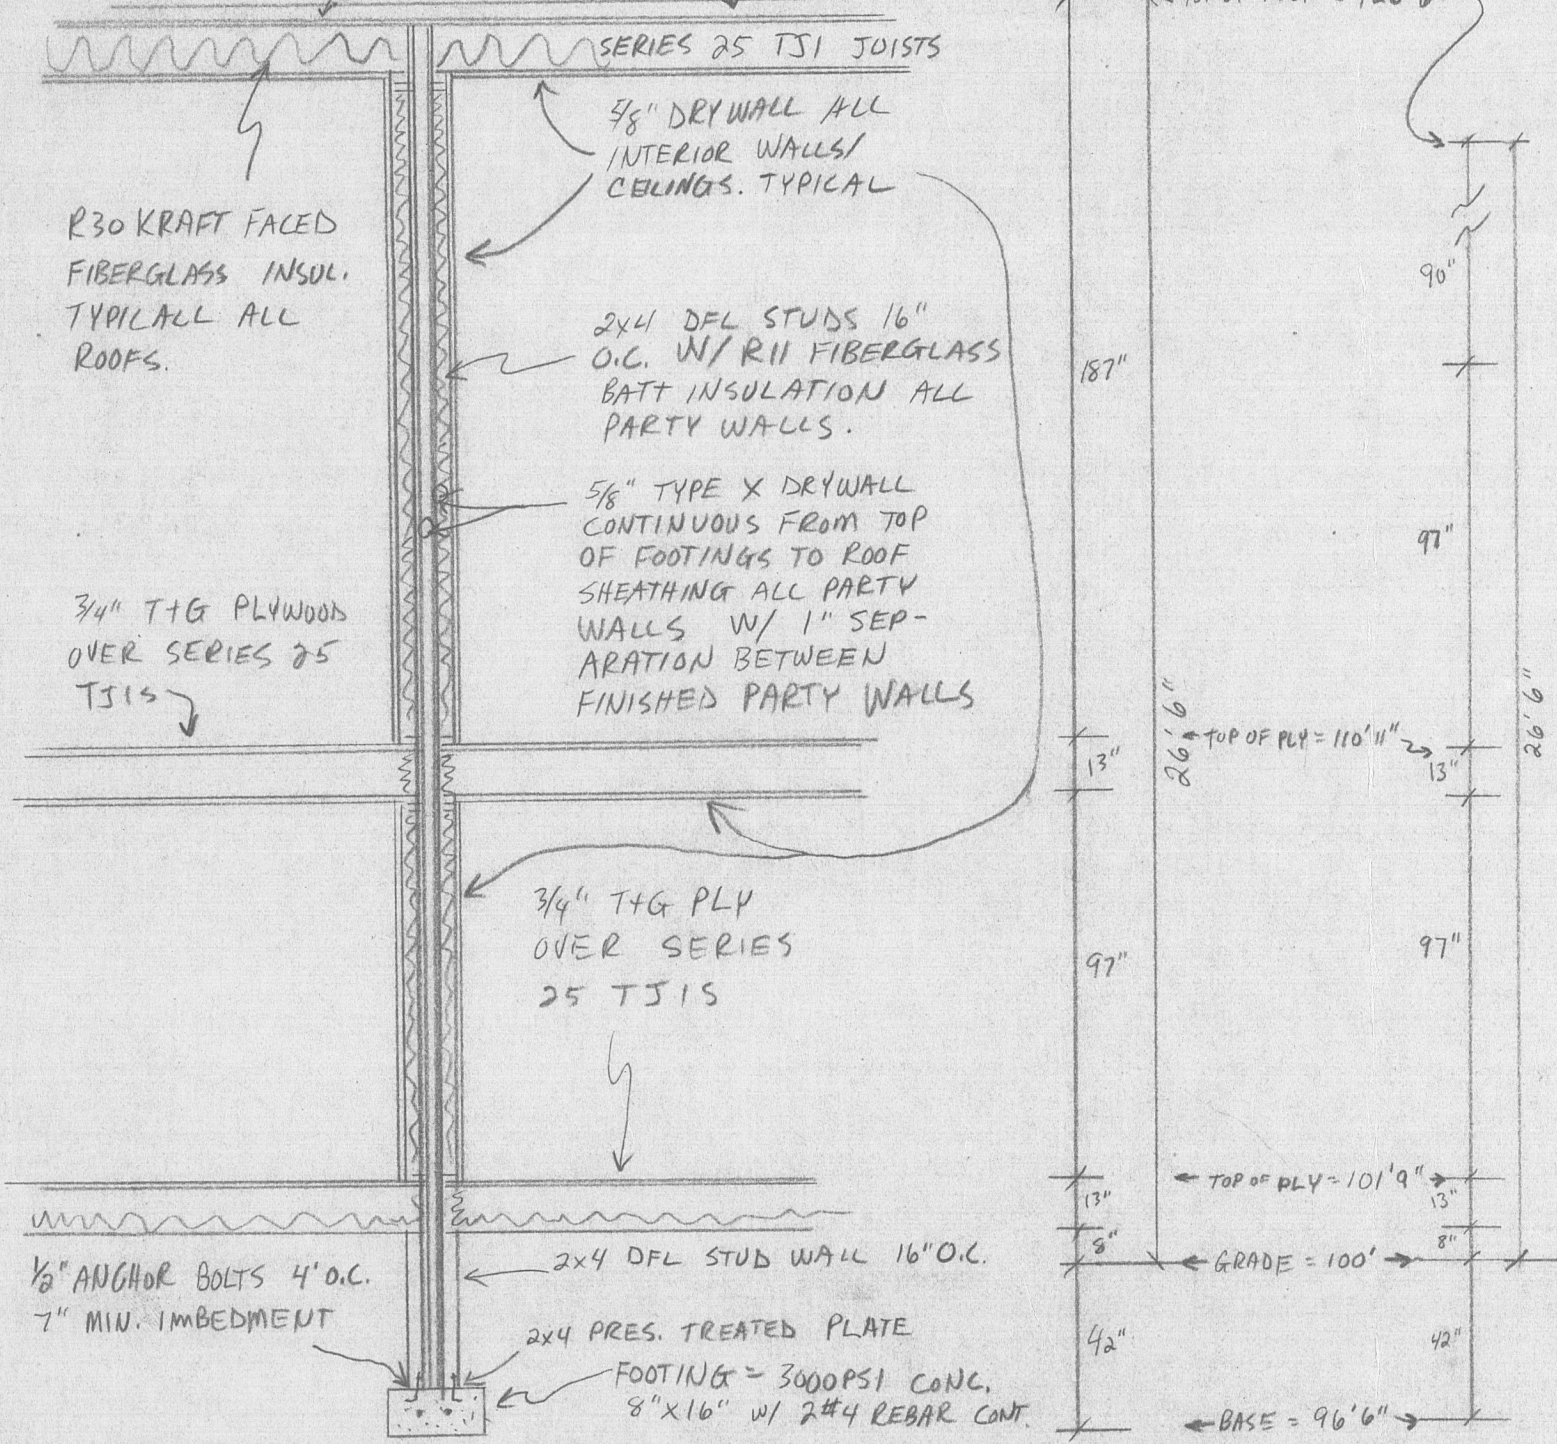 SERIES 25 TJI JOISTS
5/8" DRYWALL ALL
INTERIOR WALLS/
CEILINGS. TYPICAL
R30 KRAFT FACED
FIBERGLASS INSUL.
TYPICALL ALL
ROOFS.
2x4 DFL STUDS 16"
O.C. W/ R11 FIBERGLASS
BATT INSULATION ALL
PARTY WALLS.
5/8" TYPE X DRYWALL
CONTINUOUS FROM TOP
OF FOOTINGS TO ROOF
SHEATHING ALL PARTY
WALLS W/ 1" SEP-
ARATION BETWEEN
FINISHED PARTY WALLS
3/4" T+G PLYWOOD
OVER SERIES 25
TJIS
3/4" T+G PLY
OVER SERIES
25 TJIS
1/2" ANCHOR BOLTS 4' O.C.
7" MIN. IMBEDMENT
2x4 DFL STUD WALL 16" O.C.
2x4 PRES. TREATED PLATE
FOOTING = 3000PSI CONC.
8"X16" W/ 2#4 REBAR CONT.
187"
13"
97"
13"
8"
42"
26'6"
TOP OF PLY = 110'11"
TOP OF PLY = 101'9"
GRADE = 100'
BASE = 96'6"
90"
97"
13"
97"
13"
8"
42"
26'6"